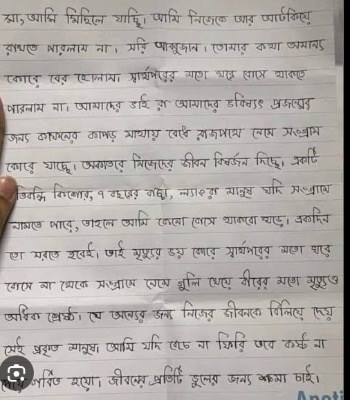 মা, আমি মিছিলে যাচ্ছি। আমি নিজেকে আর আটকিয়ে
রাখতে পারলাম না। সরি আব্বুজান। তোমার কথা অমান্য
কোরে বের হোলাম। স্বার্থপরের মতো ঘরে বোসে থাকতে
পারলাম না। আমাদের ভাই রা আমাদের ভবিষ্যৎ প্রজন্মের
জন্য কাফনের কাপড় মাথায় বেধে রাজপথে নেমে সংগ্রাম
কোরে যাচ্ছে। অকাতরে নিজেদের জীবন বিষর্জন দিচ্ছে। একটি
প্রতিবন্ধি কিশোর, ৭ বছরের বাচ্চা, ল্যাংরা মানুষ যদি সংগ্রামে
নামতে পারে, তাহলে আমি কেনো বোসে থাকবো ঘরে। একদিন
তো মরতে হবেই। তাই মৃত্যুর ভয় কোরে স্বার্থপরের মতো ঘরে
বোসে না থেকে সংগ্রামে নেমে গুলি খেয়ে বীরের মতো মৃত্যুও
অধিক শ্রেষ্ঠ। যে অন্যের জন্য নিজের জীবনকে বিলিয়ে দেয়
সেই প্রকৃত মানুষ। আমি যদি বেচে না ফিরি তবে কষ্ট না
পেয়ে গর্বিত হয়ো। জীবনের প্রতিটি ভুলের জন্য ক্ষমা চাই।